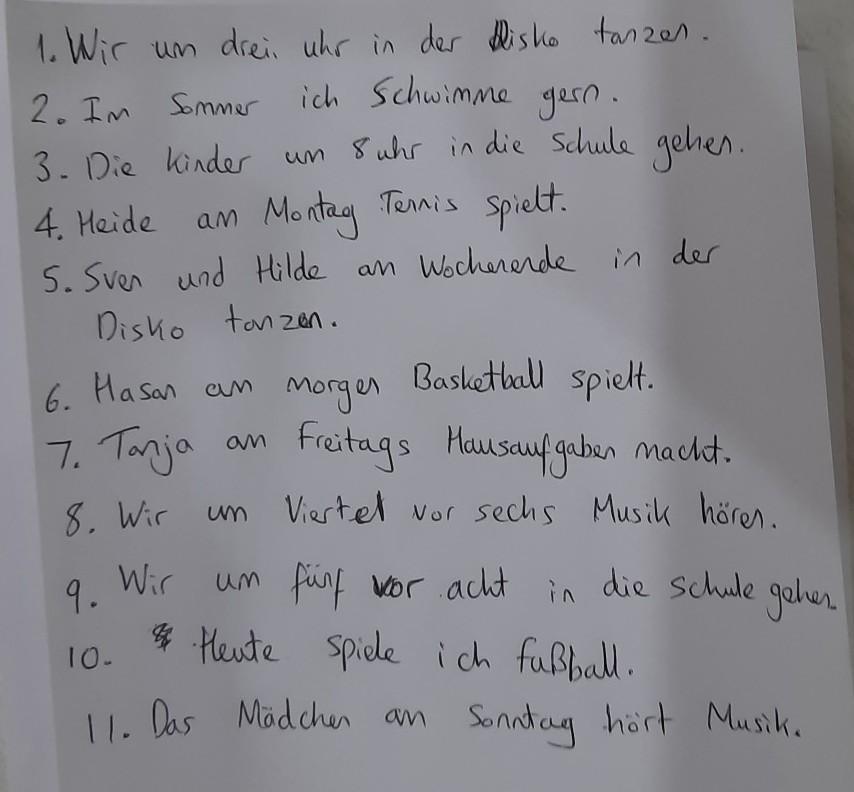 1. Wir um drei. uhr in der Disko tanzen.
2. Im Sommer ich Schwimme gern.
3. Die Kinder um 8 uhr in die Schule gehen.
4. Heide am Montag Tennis spielt.
5. Sven und Hilde am Wochenende in der
Disko tanzen.
6. Hasan am morgen Basketball spielt.
7. Tanja am Freitags Hausaufgaben macht.
8. Wir um Viertel vor sechs Musik hören.
9. Wir um fünf vor acht in die Schule gehen.
10. Heute spiele ich fußball.
11. Das Mädchen am Sonntag hört Musik.